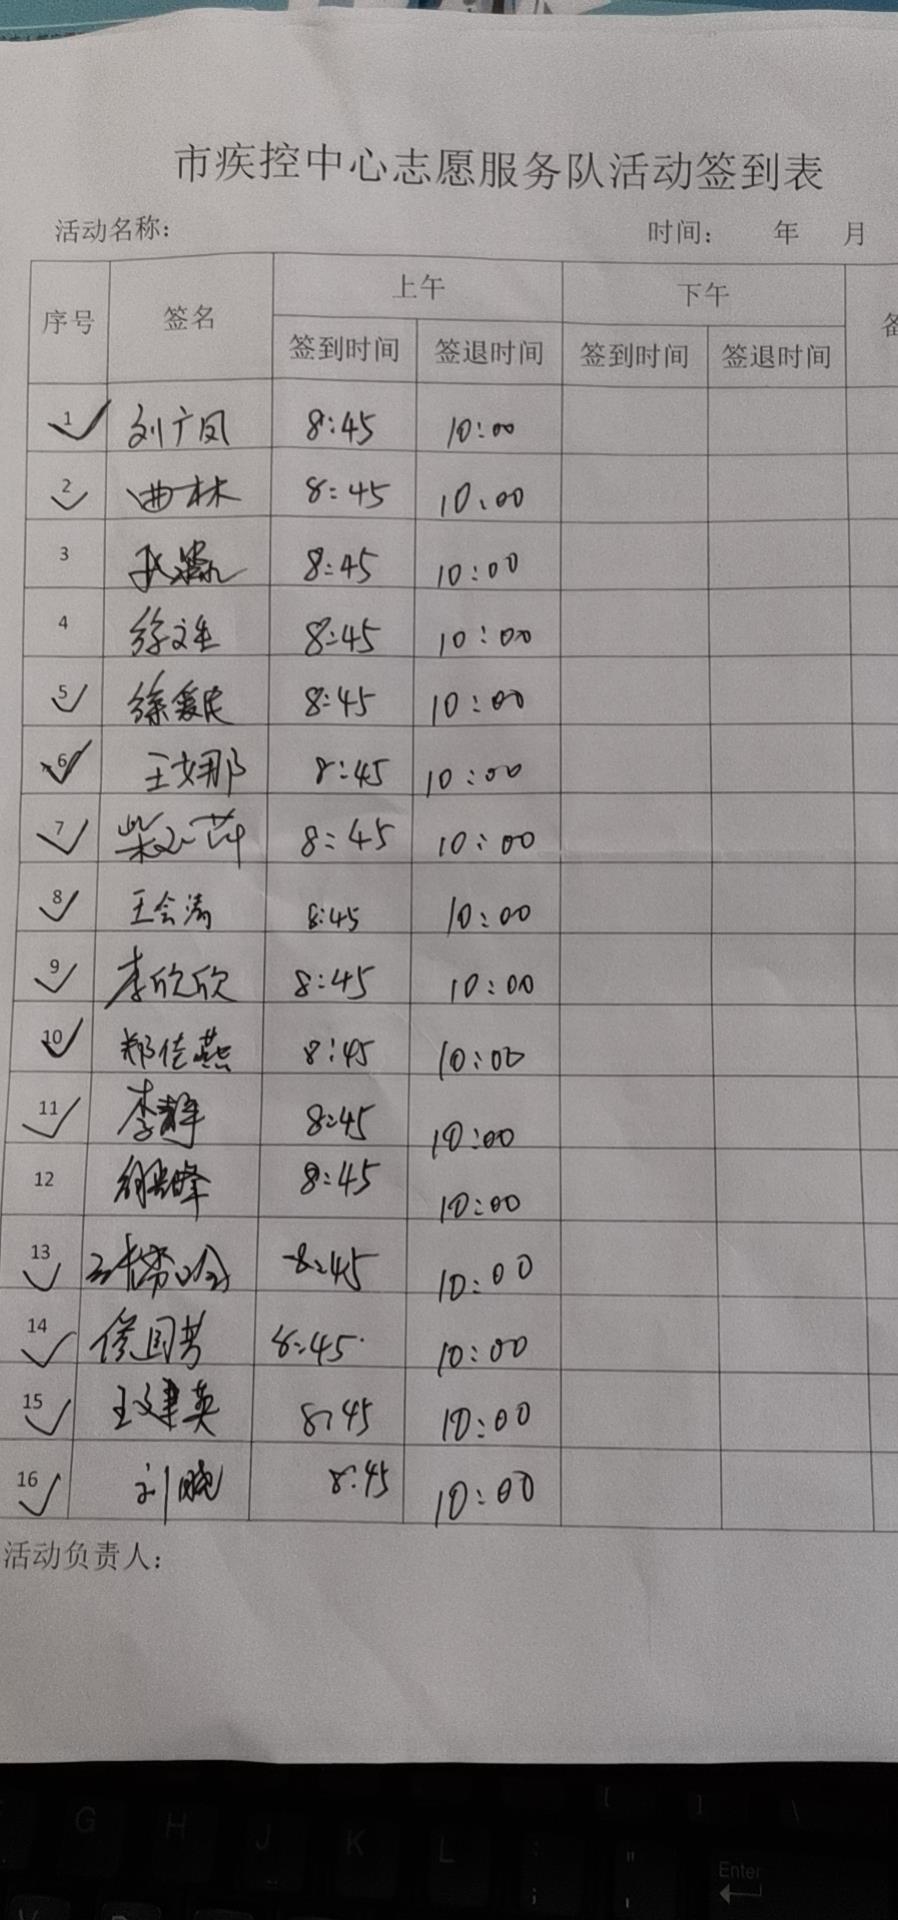 市疾控中心志愿服务队活动签到表
活动名称： 时间： 年 月
序号 签名 上午 下午
签到时间 签退时间 签到时间 签退时间
1 刘广凤 8:45 10:00
2 曲林 8:45 10:00
3 8:45 10:00
4 徐文生 8:45 10:00
5 徐爱民 8:45 10:00
6 王娜 8:45 10:00
7 柴 萍 8:45 10:00
8 王会涛 8:45 10:00
9 李欣欣 8:45 10:00
10 郑佳燕 8:45 10:00
11 李静 8:45 10:00
12 8:45 10:00
13 8:45 10:00
14 侯国芳 8:45 10:00
15 王建英 8:45 10:00
16 刘晓 8:45 10:00
活动负责人：
G H J K L Enter